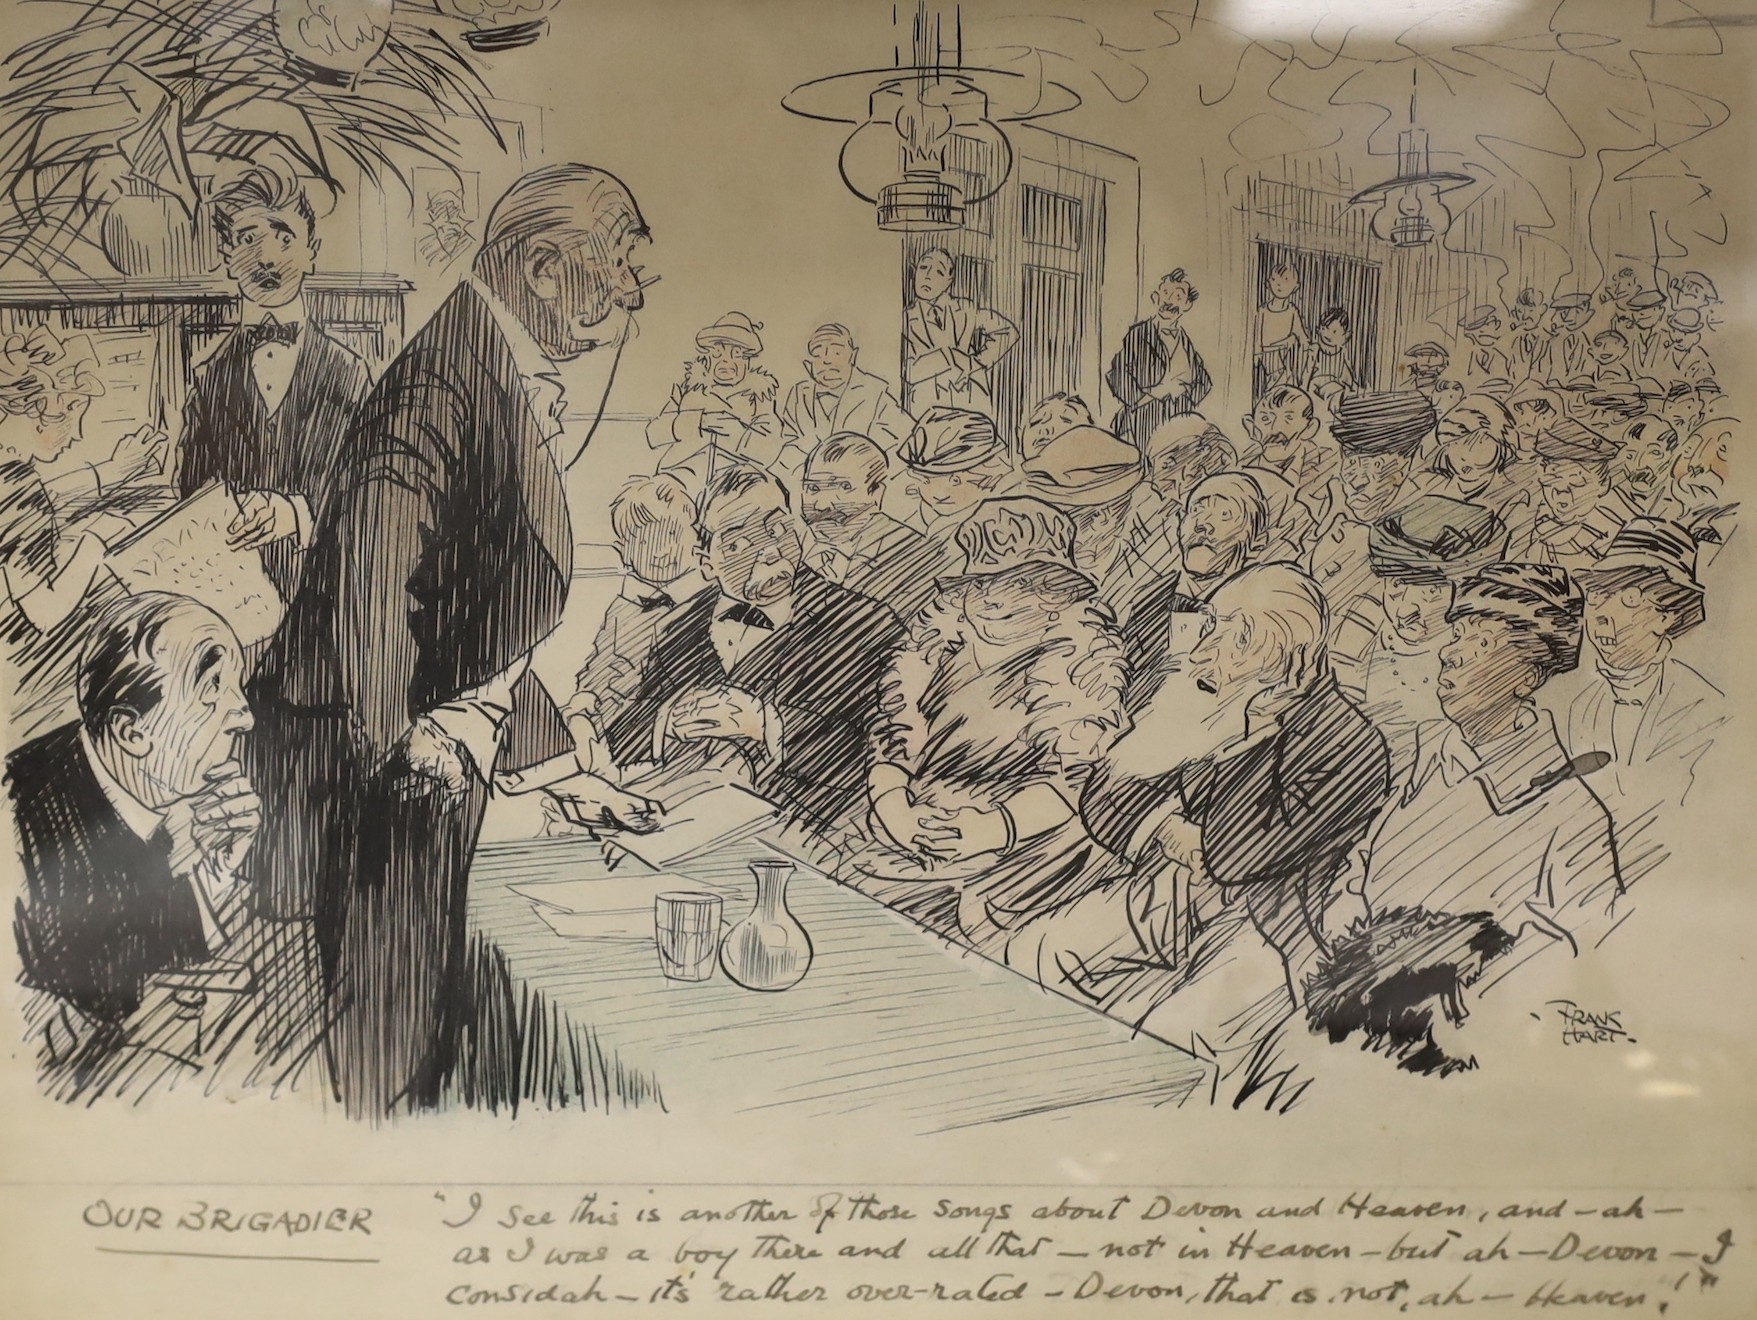 FRANK
HART.
OUR BRIGADIER
"I see this is another of those songs about Devon and Heaven, and - ah -
as I was a boy there and all that - not in Heaven - but ah - Devon - I
considah - it's rather over-rated - Devon, that is, not, ah - Heaven!"